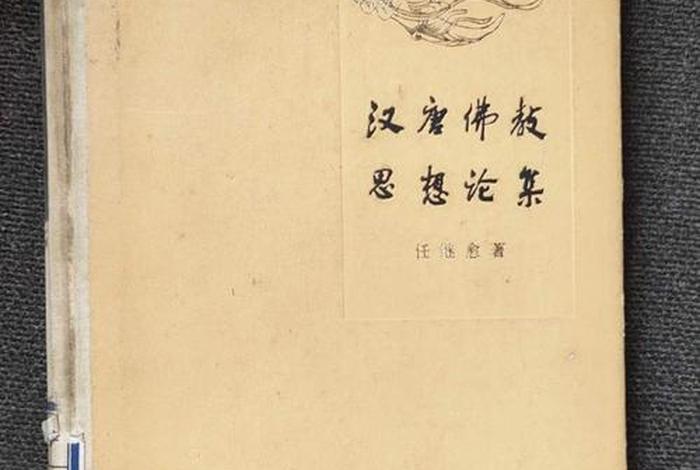 汉唐佛教
思想论集
任继愈著